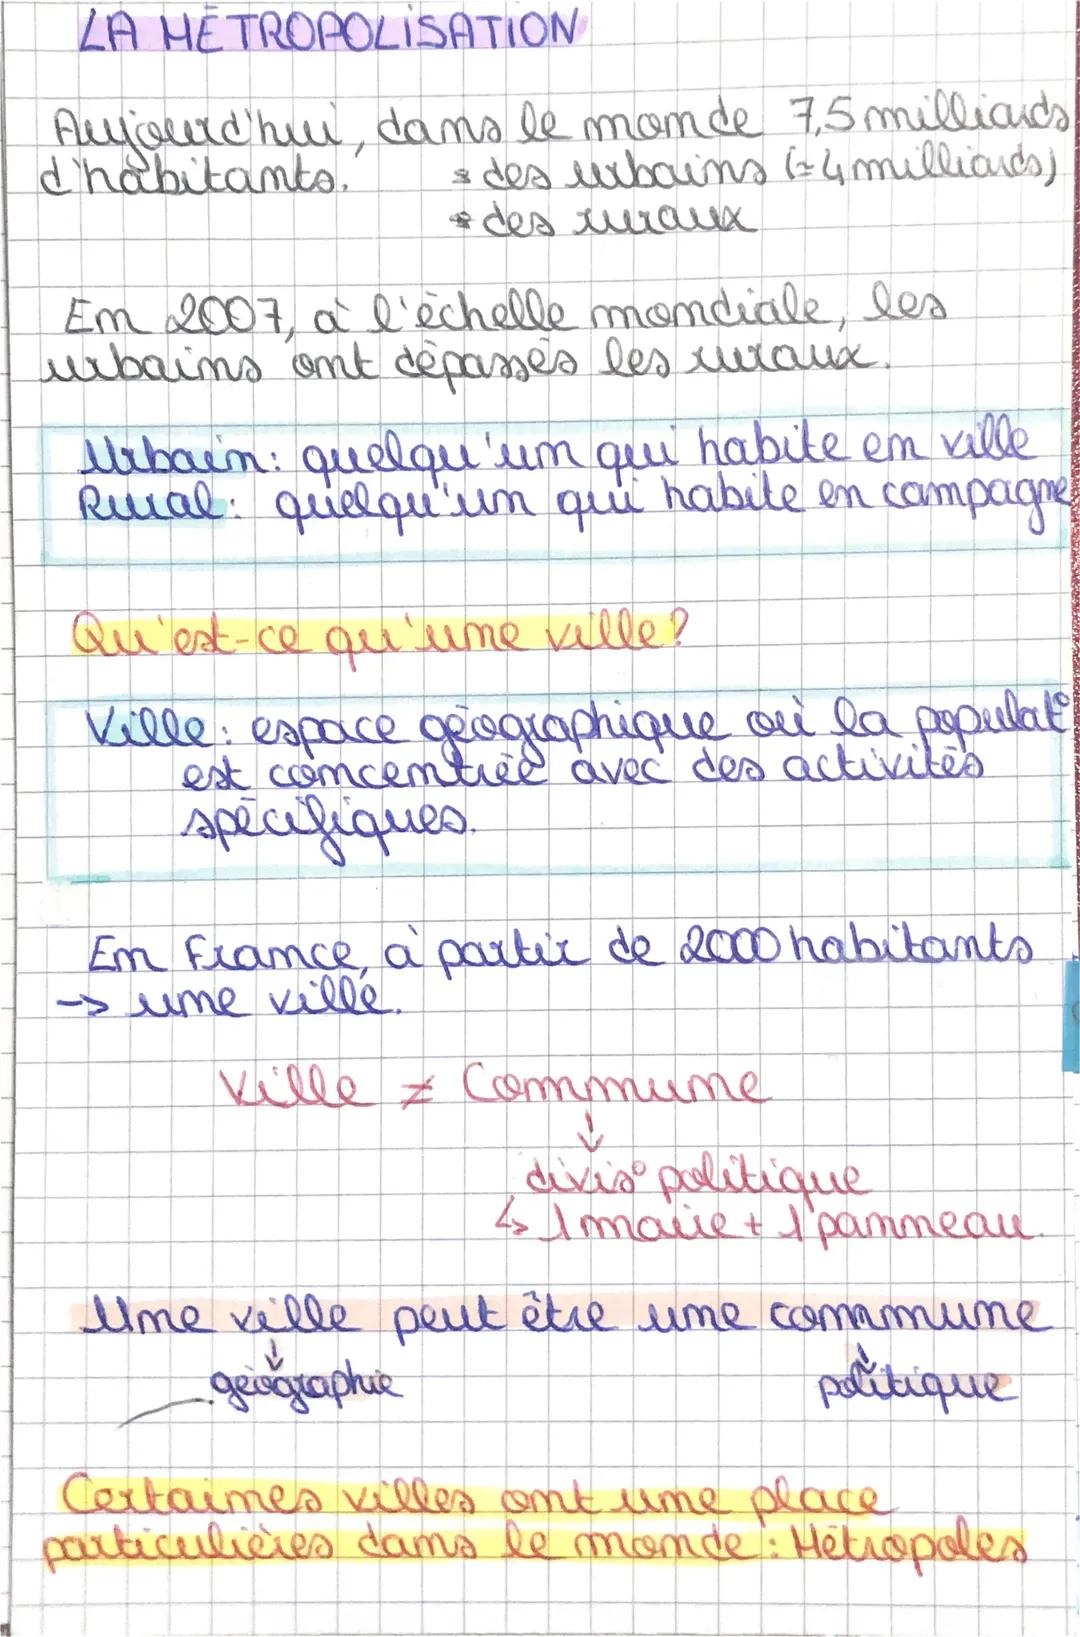 LA MÉTROPOLISATION
Aujourd'hui, dans le monde 7,5 milliards
d'habitants. * des urbains (≈ 4 milliards)
* des ruraux
En 2007, à l'échelle mondiale, les
urbains ont dépassés les ruraux.
Urbain : quelqu'un qui habite en ville
Rural : quelqu'un qui habite en campagne
Qu'est-ce qu'une ville ?
Ville : espace géographique où la populat°
est concentrée avec des activités
spécifiques.
En France, à partir de 2000 habitants
-> une ville.
Ville ≠ Commune
↓
divis° politique
↳ 1 mairie + 1 panneau.
Une ville peut être une commune
↓ ↓
géographie politique
Certaines villes ont une place
particulières dans le monde : Métropoles